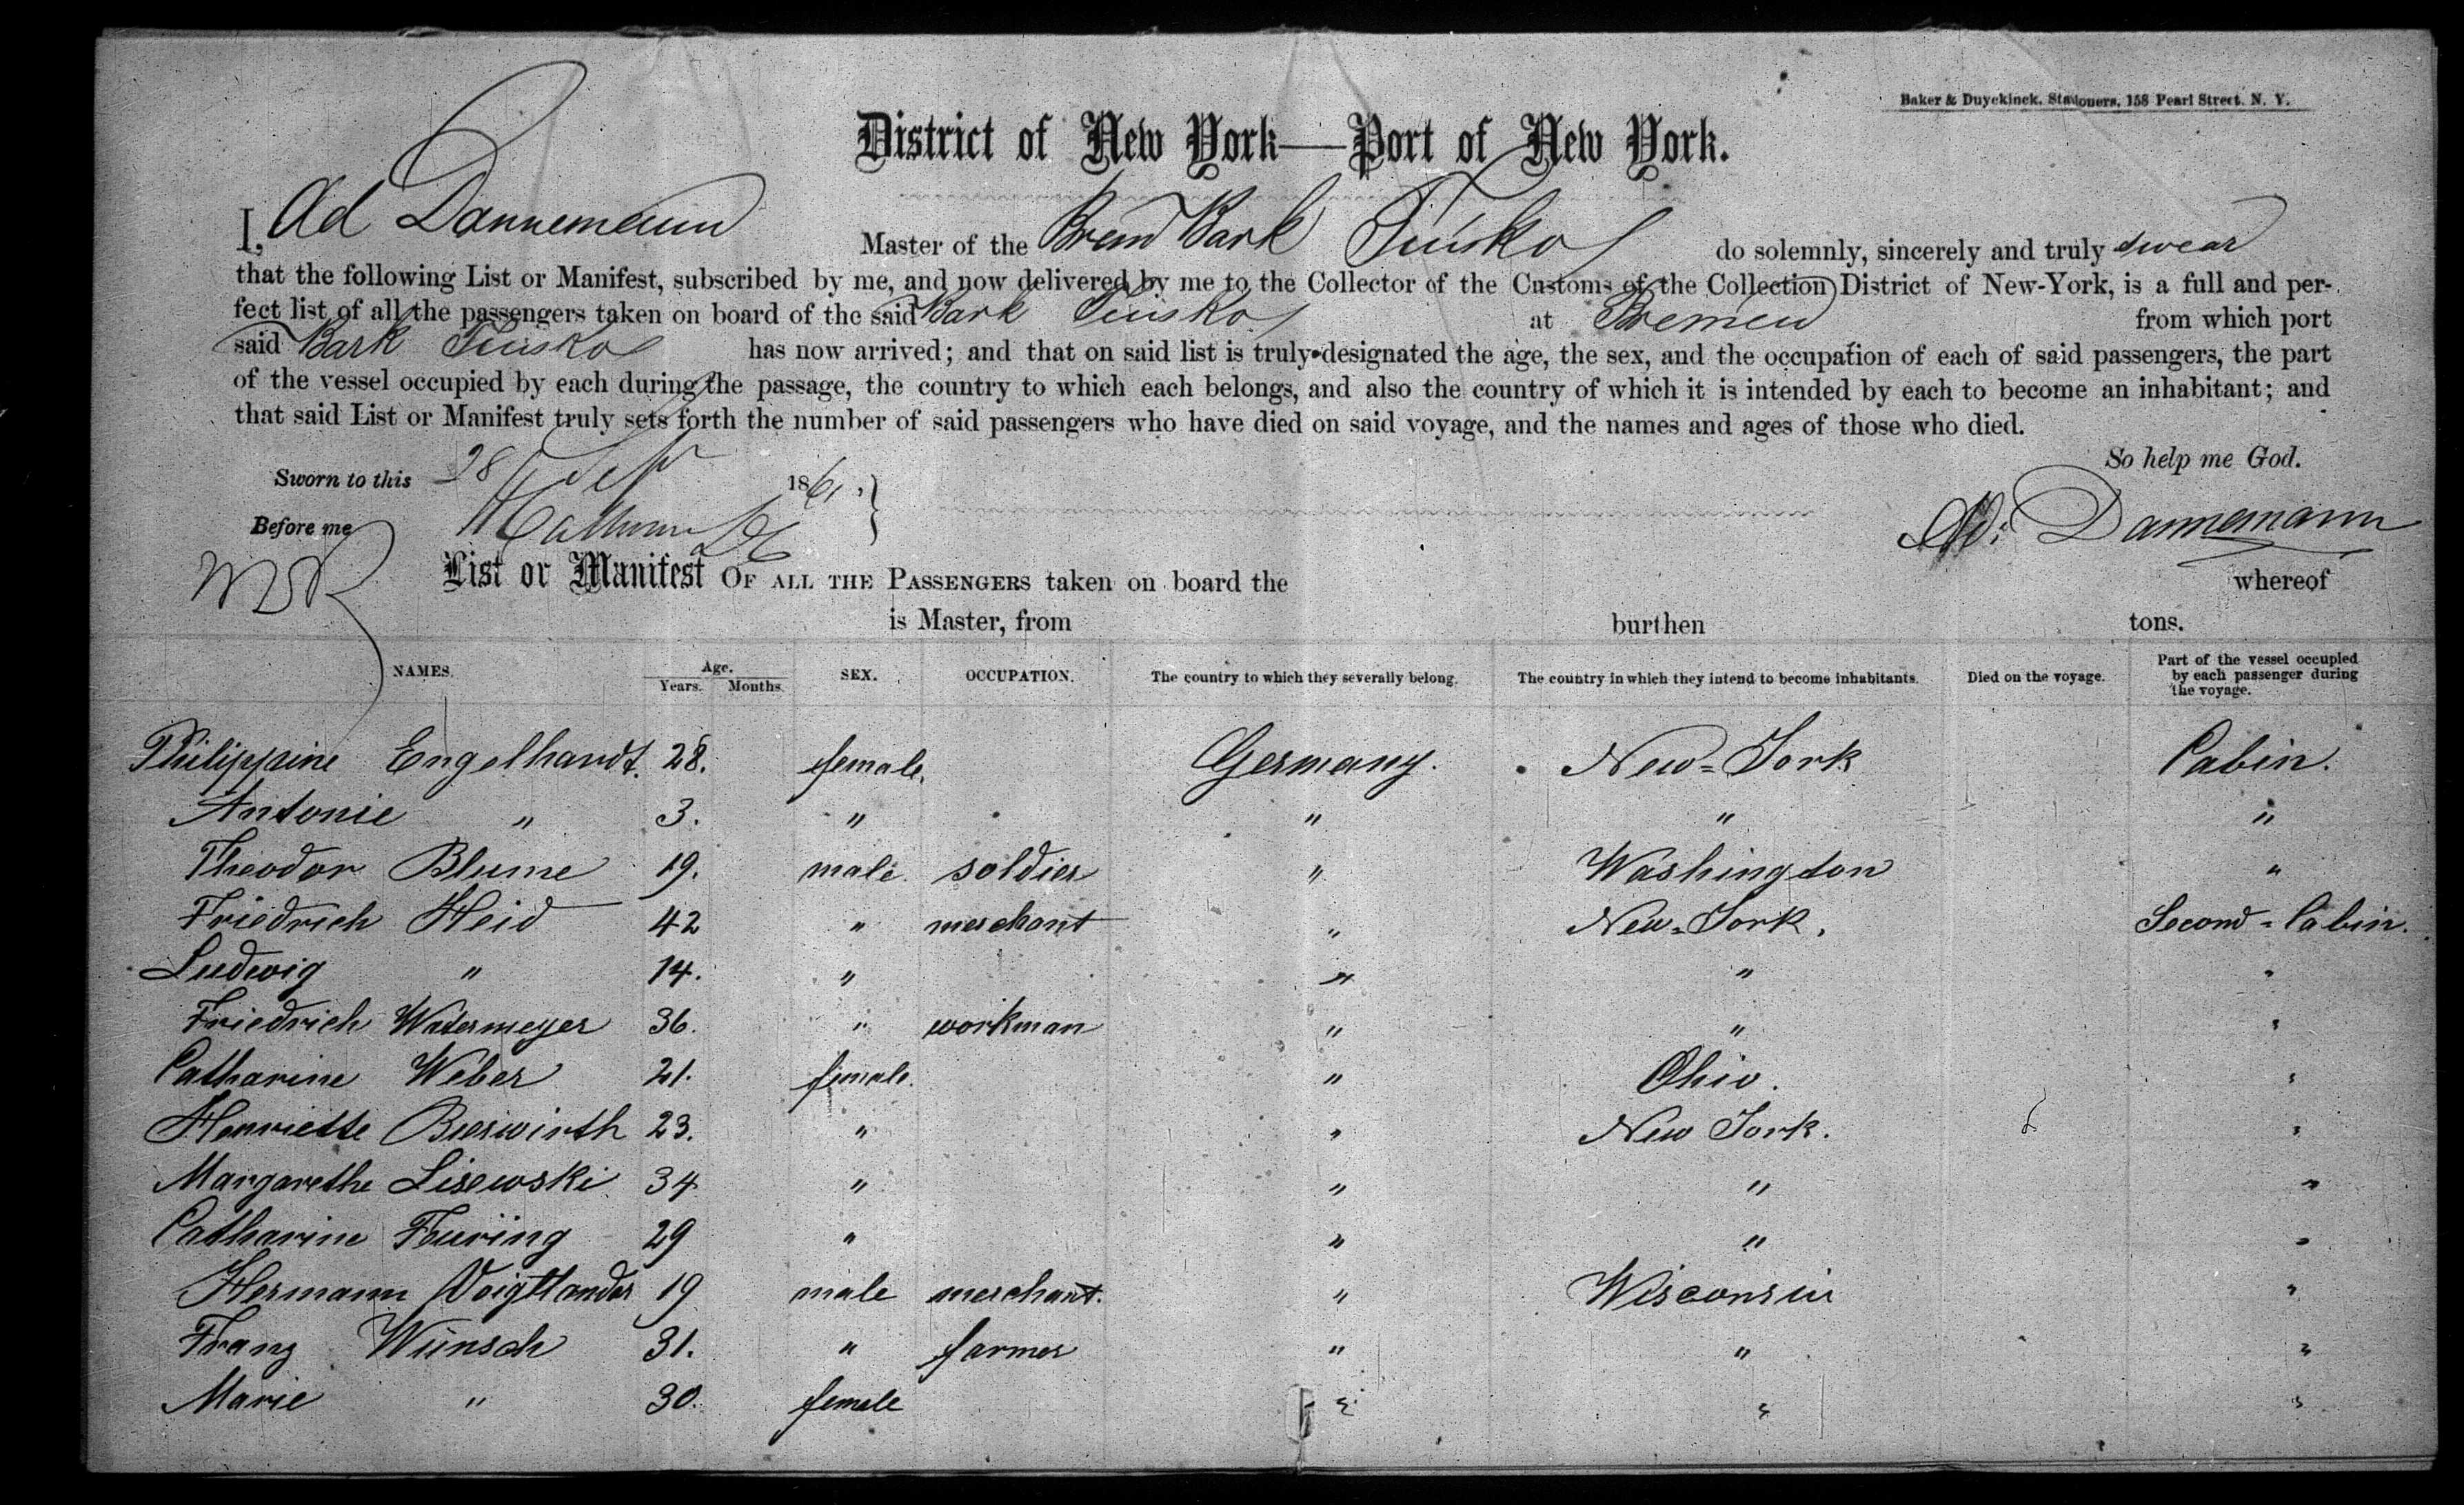 Baker & Duyckinck, Stationers, 158 Pearl Street. N. Y.
District of New York—Port of New York.
I, Ad Dannemann Master of the Brem Bark Tuisko do solemnly, sincerely and truly swear
that the following List or Manifest, subscribed by me, and now delivered by me to the Collector of the Customs of the Collection District of New-York, is a full and per-
fect list of all the passengers taken on board of the said Bark Tuisko at Bremen from which port
said Bark Tuisko has now arrived; and that on said list is truly designated the age, the sex, and the occupation of each of said passengers, the part
of the vessel occupied by each during the passage, the country to which each belongs, and also the country of which it is intended by each to become an inhabitant; and
that said List or Manifest truly sets forth the number of said passengers who have died on said voyage, and the names and ages of those who died.
So help me God.
Sworn to this 28 Sep 1861.
Before me
Ad. Dannemann
List or Manifest OF ALL THE PASSENGERS taken on board the whereof
is Master, from burthen tons.
NAMES. Age. Years. Months. SEX. OCCUPATION. The country to which they severally belong. The country in which they intend to become inhabitants. Died on the voyage. Part of the vessel occupied by each passenger during the voyage.
Philippine Engelhardt. 28. female. Germany. New=York Cabin.
Antonie " 3. " " " "
Theodor Blume 19. male. soldier " Washington "
Friedrich Heid 42 " merchant " New=York. Second=Cabin.
Ludwig " 14. " " " "
Friedrich Watermeyer 36. " workman " " "
Catharine Weber 21. female. " Ohio. "
Henriette Bierwirth 23. " " New York. "
Margarethe Lisewski 34 " " " "
Catharine Feuring 29 " " " "
Hermann Voigtlander 19 male merchant. " Wisconsin "
Franz Wünsch 31. " farmer " " "
Marie " 30. female " " "